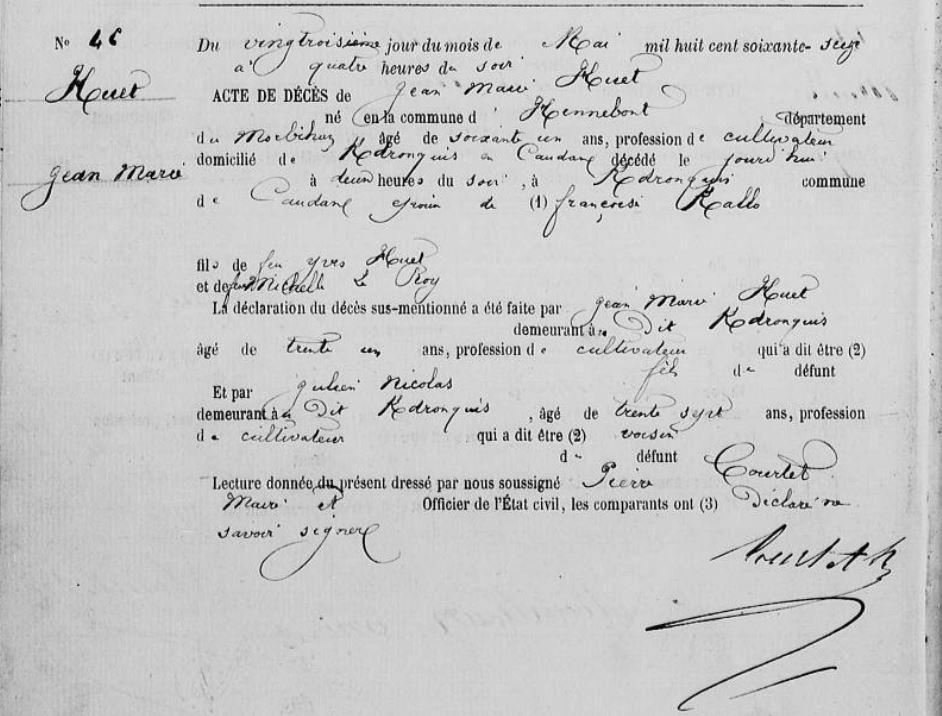 No 46
Du vingtroisième jour du mois de Mai mil huit cent soixante-seize
à quatre heures du soir
Huet
ACTE DE DÉCÈS de Jean Marie Huet
né en la commune d' Hennebont département
du Morbihan âgé de soixante un ans, profession de cultivateur
domicilié de Kdronquis en Caudan décédé le jourd'hui
Jean Marie
à deux heures du soir, à Kdronquis commune
de Caudan époux de (1) françoise Kallo
fils de feu Yves Huet
et de feue Michelle Le Roy
La déclaration du décès sus-mentionné a été faite par Jean Marie Huet
demeurant à Dit Kdronquis
âgé de trente un ans, profession de cultivateur qui a dit être (2)
fils du défunt
Et par Julien Nicolas
demeurant au Dit Kdronquis, âgé de trente sept ans, profession
de cultivateur qui a dit être (2) voisin
du défunt
Lecture donnée du présent dressé par nous soussigné Pierre Courtet
Maire et Officier de l'État civil, les comparants ont (3) Déclaré ne
savoir signer